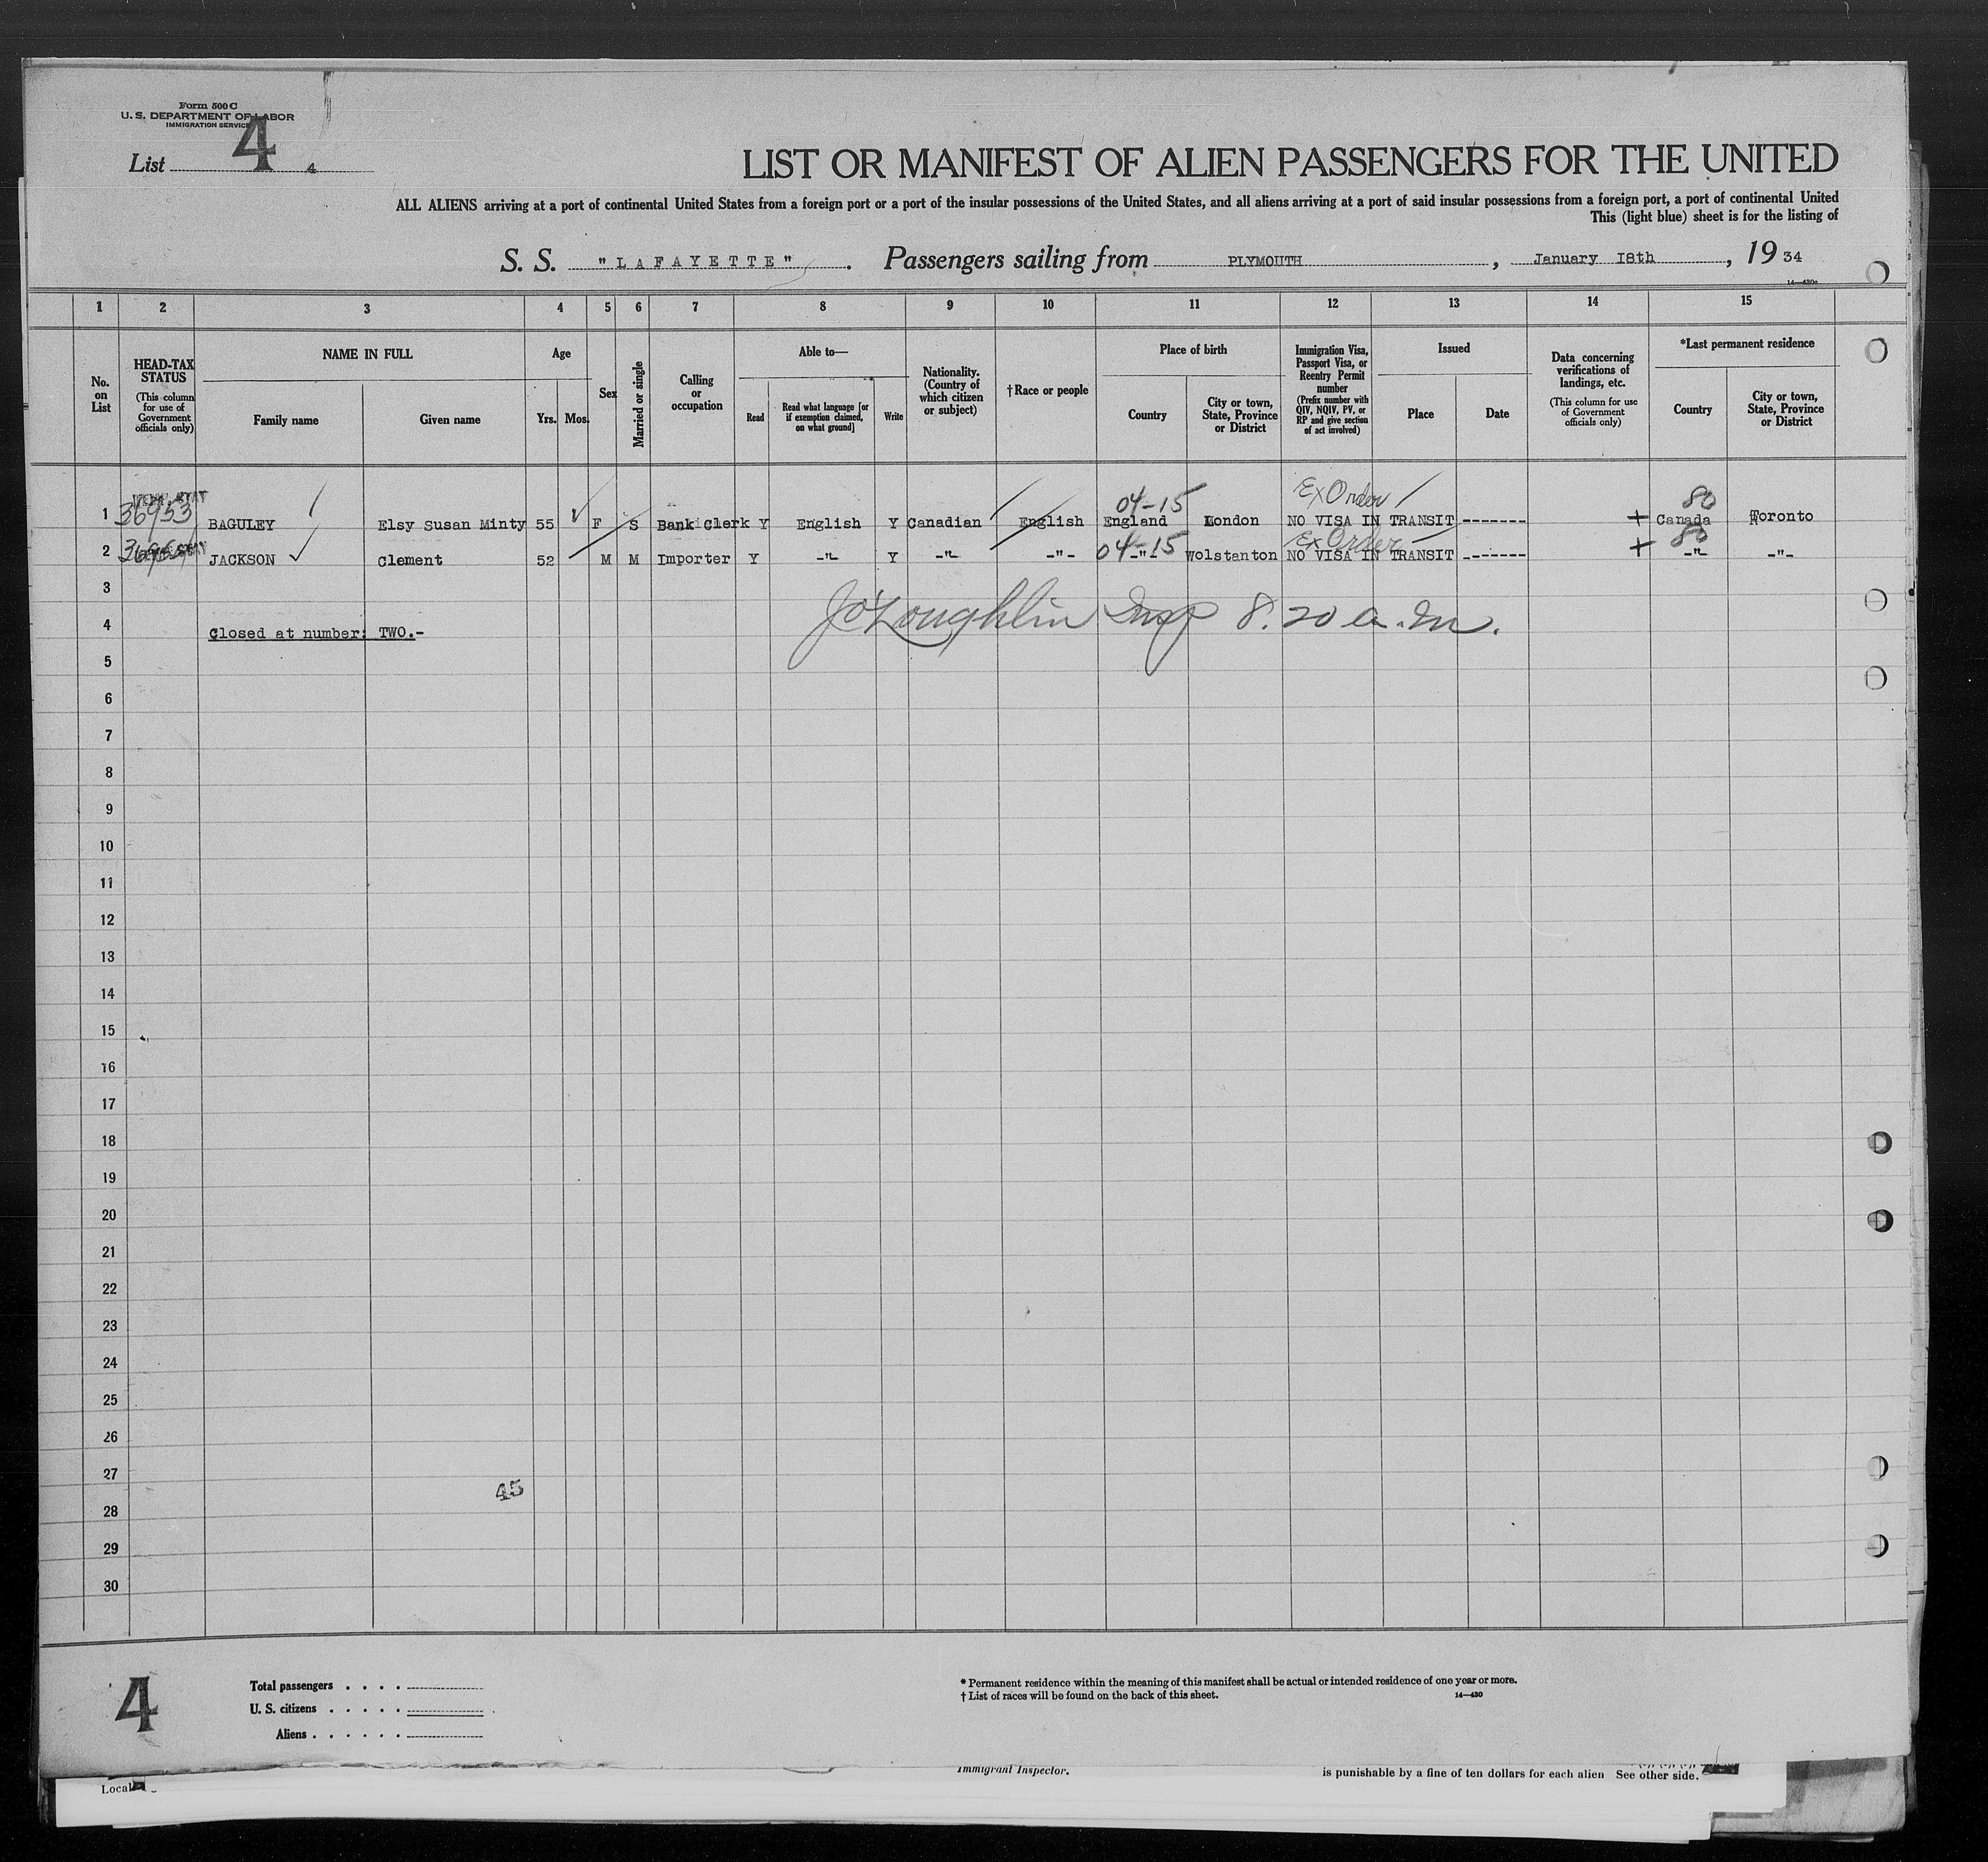 Form 500 C
U. S. DEPARTMENT OF LABOR
IMMIGRATION SERVICE
List 4 4
LIST OR MANIFEST OF ALIEN PASSENGERS FOR THE UNITED
ALL ALIENS arriving at a port of continental United States from a foreign port or a port of the insular possessions of the United States, and all aliens arriving at a port of said insular possessions from a foreign port, a port of continental United
This (light blue) sheet is for the listing of
S. S. "LAFAYETTE". Passengers sailing from PLYMOUTH, January 18th, 19 34
1 2 3 4 5 6 7 8 9 10 11 12 13 14 15
No. on List
HEAD-TAX STATUS (This column for use of Government officials only)
NAME IN FULL
Family name
Given name
Age
Yrs. Mos.
Sex
Married or single
Calling or occupation
Able to—
Read
Read what language [or if exemption claimed, on what ground]
Write
Nationality. (Country of which citizen or subject)
† Race or people
Place of birth
Country
City or town, State, Province or District
Immigration Visa, Passport Visa, or Reentry Permit number (Prefix number with QIV, NQIV, PV, or RP and give section of act involved)
Issued
Place
Date
Data concerning verifications of landings, etc. (This column for use of Government officials only)
*Last permanent residence
Country
City or town, State, Province or District
04-15 Ex Order 80
1 36953 BAGULEY Elsy Susan Minty 55 F S Bank Clerk Y English Y Canadian English England London NO VISA IN TRANSIT ------- + Canada Toronto
04-15 Ex Order 80
2 JACKSON Clement 52 M M Importer Y -"- Y -"- -"- -"- Wolstanton NO VISA IN TRANSIT ------- + -"- -"-
3
J O'Loughlin Insp 8.20 a.m.
4 Closed at number: TWO.-
5
6
7
8
9
10
11
12
13
14
15
16
17
18
19
20
21
22
23
24
25
26
27
45
28
29
30
4
Total passengers . . . .
U. S. citizens . . . . .
Aliens . . . . . .
* Permanent residence within the meaning of this manifest shall be actual or intended residence of one year or more.
† List of races will be found on the back of this sheet. 14—430
Immigrant Inspector.
is punishable by a fine of ten dollars for each alien See other side.
Local